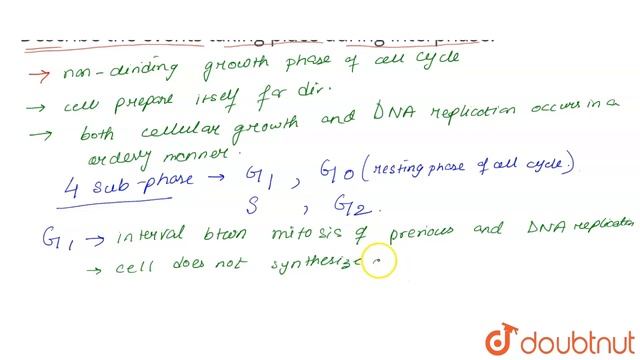 Describe the events taking place during interphase.
→ non-dividing growth phase of cell cycle
→ cell prepare itself for div.
→ both cellular growth and DNA replication occurs in a
orderly manner.
4 sub-phase → G1 , G0 (resting phase of cell cycle)
S , G2.
G1 → interval btwn mitosis of previous and DNA replication
→ cell does not synthesize
doubtnut